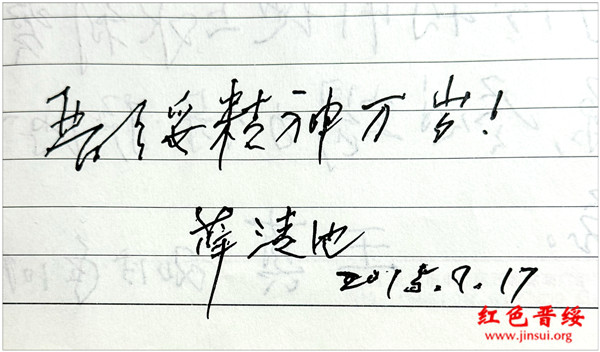 晋绥精神万岁!
薛清池
2015.9.17
红色晋绥
www.jinsui.org